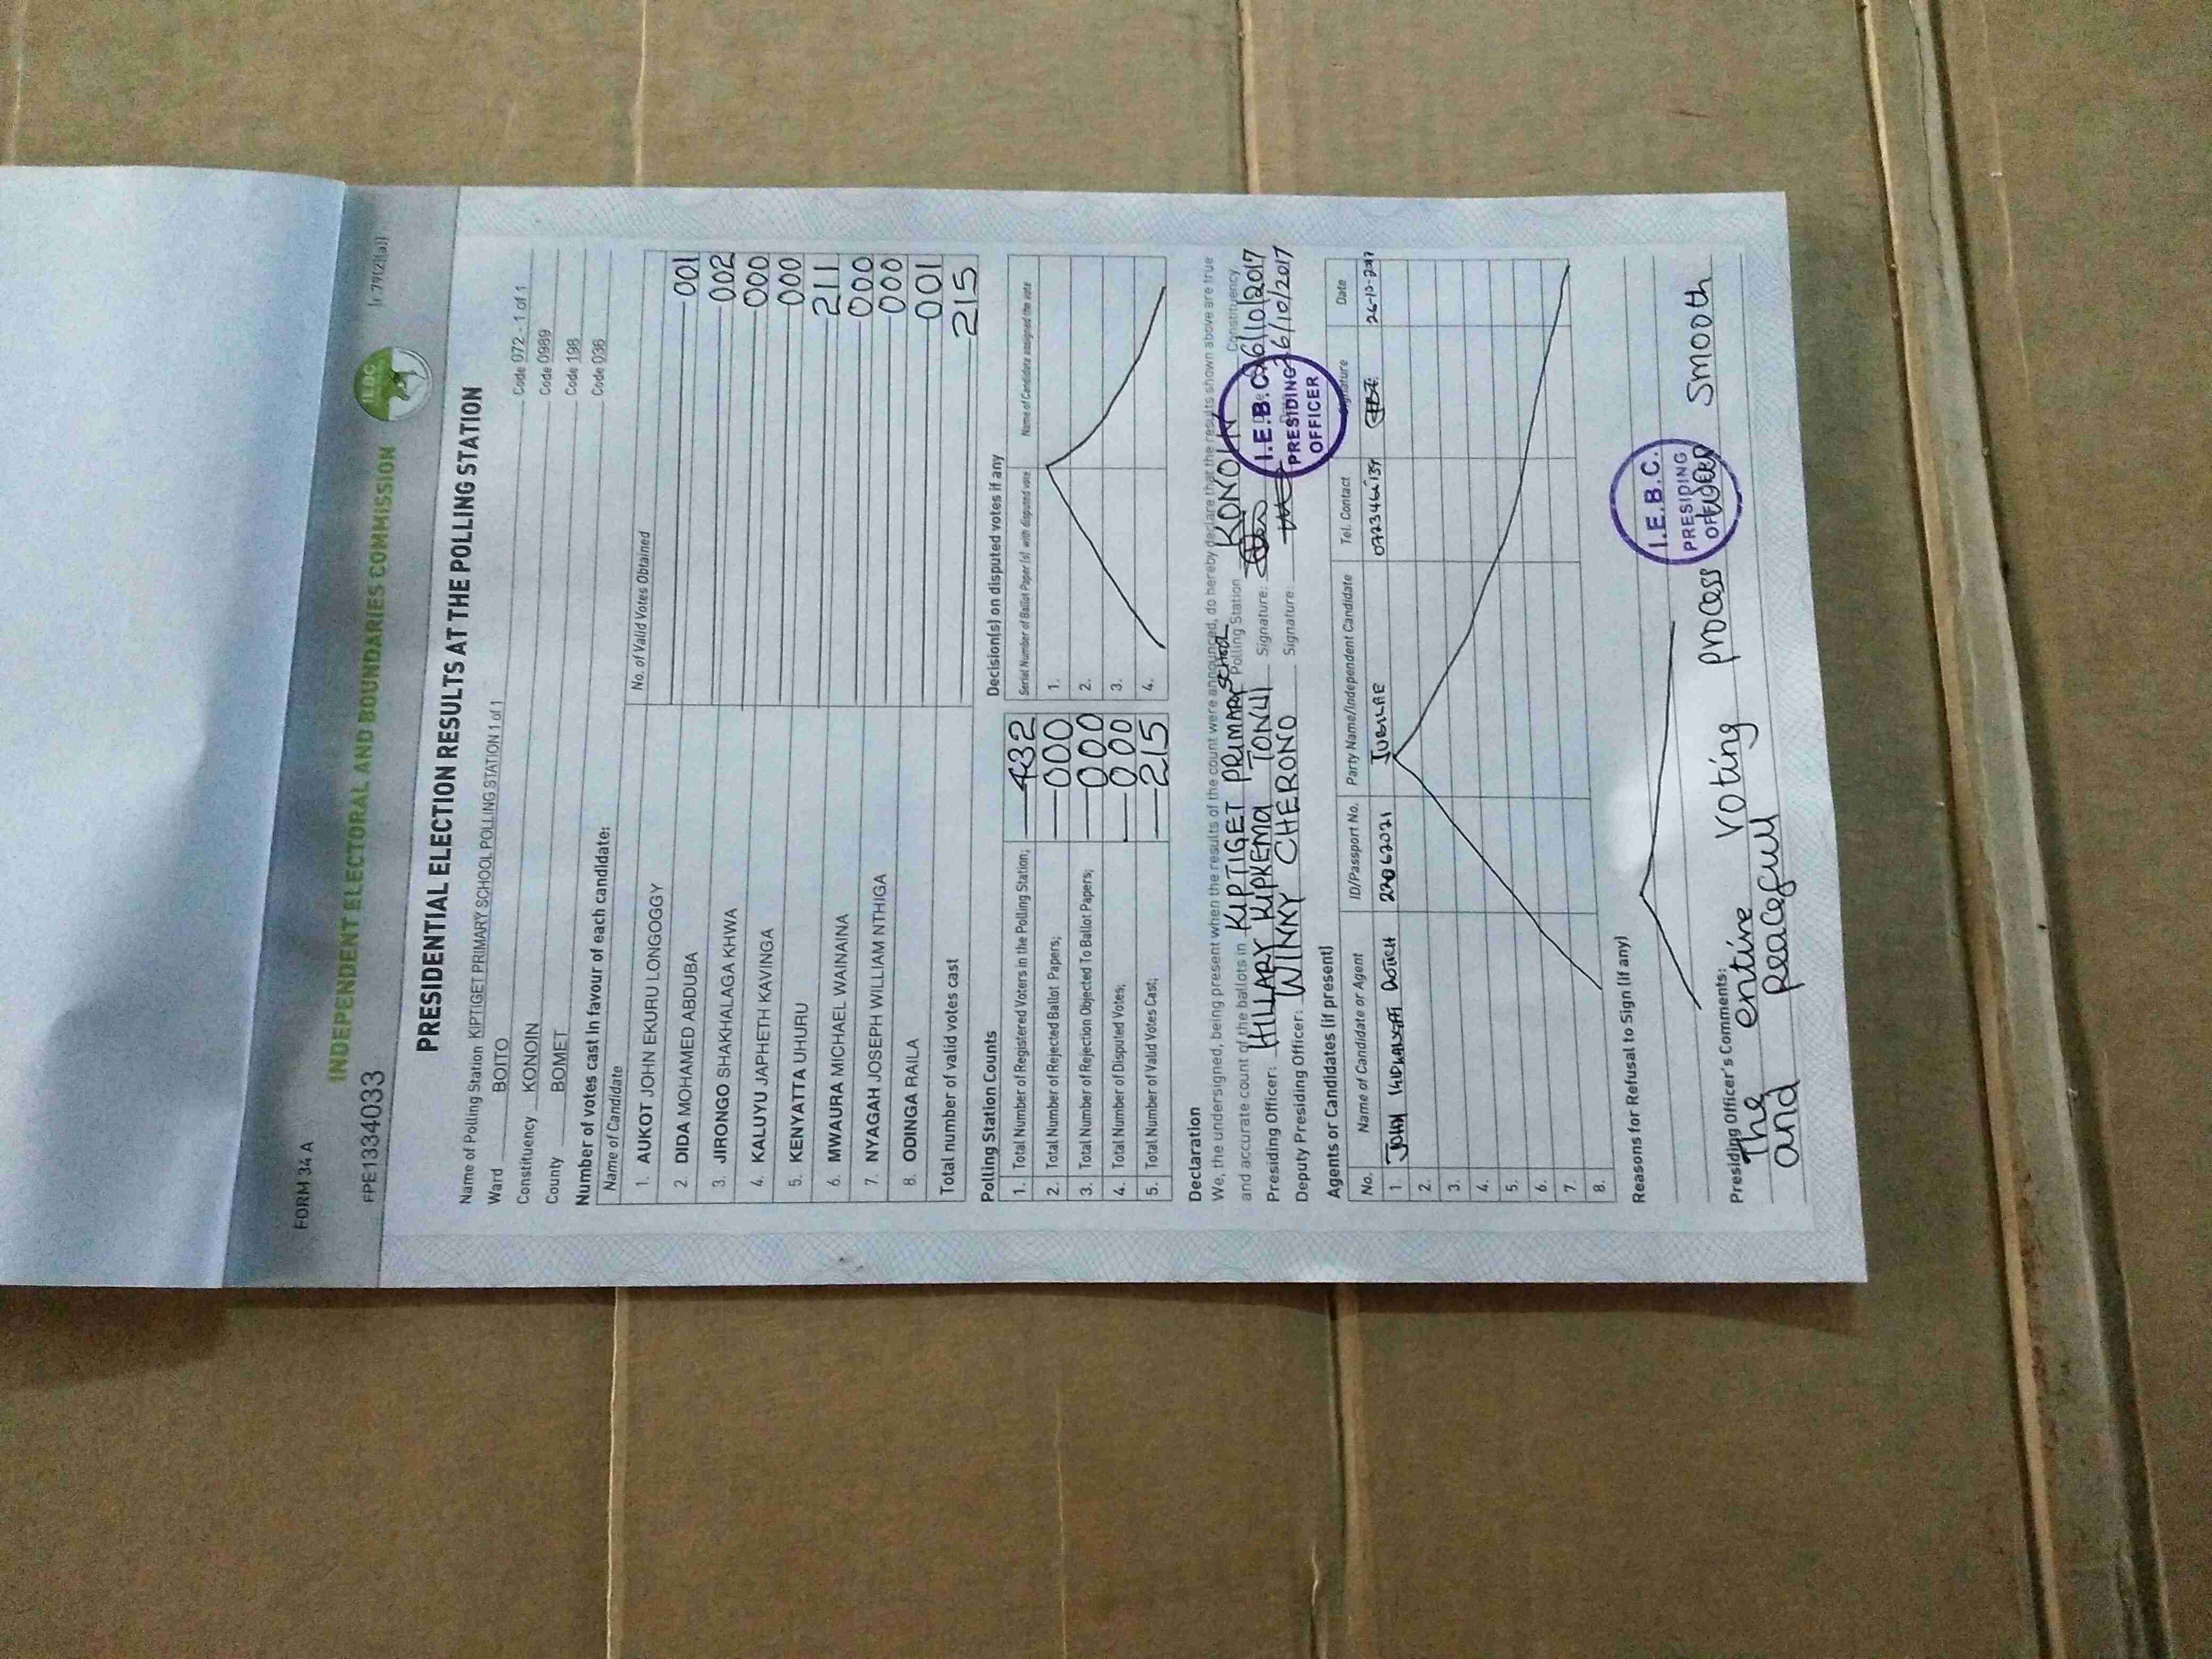 FORM 34 A
INDEPENDENT ELECTORAL AND BOUNDARIES COMMISSION
IEBC
FPE1334033
PRESIDENTIAL ELECTION RESULTS AT THE POLLING STATION
Name of Polling Station KIPTIGET PRIMARY SCHOOL POLLING STATION 1 of 1 Code 072 - 1 of 1
Ward BOITO Code 0989
Constituency KONOIN Code 198
County BOMET Code 036
Number of votes cast In favour of each candidate:
Name of Candidate No. of Valid Votes Obtained
1. AUKOT JOHN EKURU LONGOGGY 001
2. DIDA MOHAMED ABDUBA 002
3. JIRONGO SHAKHALAGA KHWA 000
4. KALUYU JAPHETH KAVINGA 000
5. KENYATTA UHURU 211
6. MWAURA MICHAEL WAINAINA 000
7. NYAGAH JOSEPH WILLIAM NTHIGA 000
8. ODINGA RAILA 001
Total number of valid votes cast 215
Polling Station Counts
1. Total Number of Registered Voters in the Polling Station; 432
2. Total Number of Rejected Ballot Papers; 000
3. Total Number of Rejection Objected To Ballot Papers; 000
4. Total Number of Disputed Votes; 000
5. Total Number of Valid Votes Cast; 215
Decision(s) on disputed votes if any
Serial Number of Ballot Paper (s) with disputed vote Name of Candidate assigned the vote
1.
2.
3.
4.
Declaration
We, the undersigned, being present when the results of the count were announced, do hereby declare that the results shown above are true
and accurate count of the ballots in KIPTIGET PRIMARY SCHOOL Polling Station KONOIN Constituency
Presiding Officer: HILLARY KIPKEMOI TONUI Signature: 26/10/2017
Deputy Presiding Officer: WINNY CHERONO Signature: 26/10/2017
I.E.B.C.
PRESIDING
OFFICER
Agents or Candidates (if present)
No. Name of Candidate or Agent ID/Passport No. Party Name/Independent Candidate Tel. Contact Signature Date
1. JOHN 22062021 JUBILEE 26-10-2017
2.
3.
4.
5.
6.
7.
8.
Reasons for Refusal to Sign (if any)
I.E.B.C.
PRESIDING
OFFICER
Presiding Officer's Comments:
The entire voting process was smooth
and peaceful